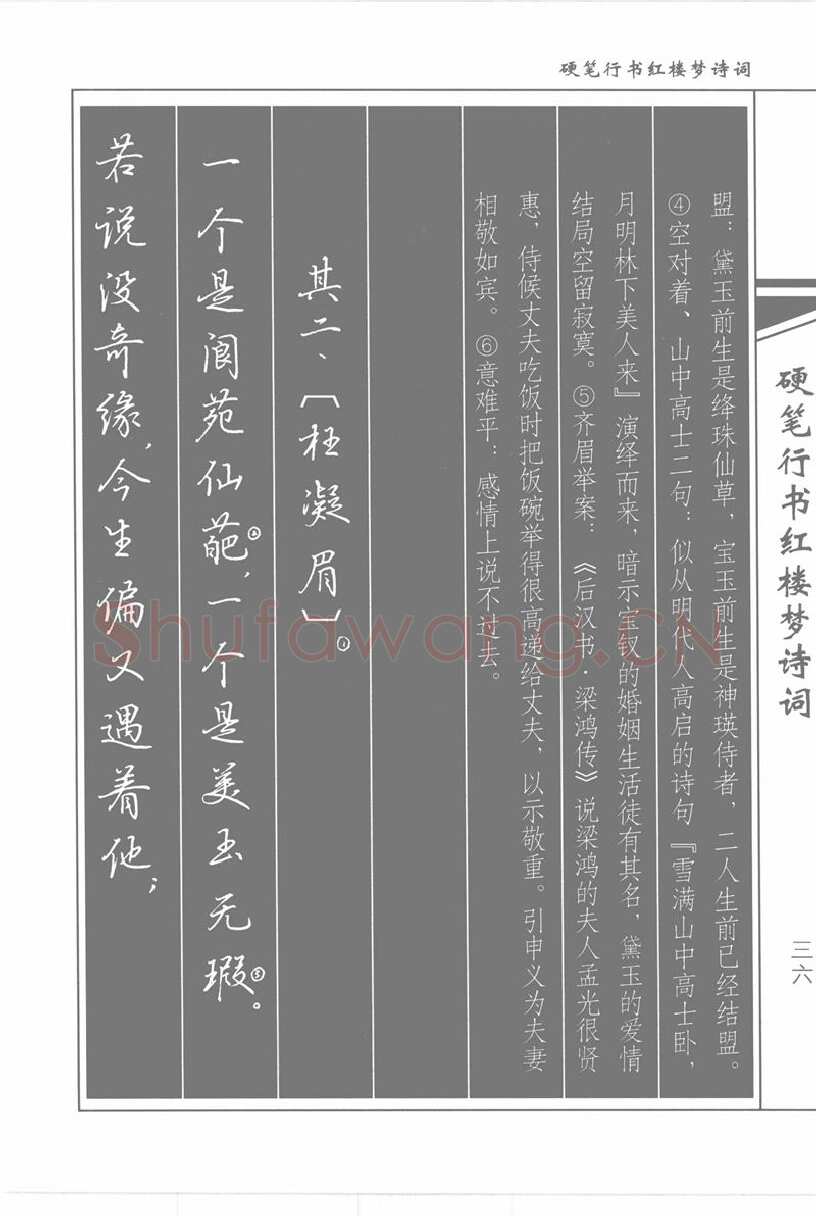 硬笔行书红楼梦诗词
硬笔行书红楼梦诗词
三六
盟：黛玉前生是绛珠仙草，宝玉前生是神瑛侍者，二人生前已经结盟。
④空对着、山中高士二句：似从明代人高启的诗句『雪满山中高士卧，
月明林下美人来』演绎而来，暗示宝钗的婚姻生活徒有其名，黛玉的爱情
结局空留寂寞。⑤齐眉举案：《后汉书·梁鸿传》说梁鸿的夫人孟光很贤
惠，侍候丈夫吃饭时把饭碗举得很高递给丈夫，以示敬重。引申义为夫妻
相敬如宾。⑥意难平：感情上说不过去。
其二、〔枉凝眉〕①
一个是阆苑仙葩②，一个是美玉无瑕③。
若说没奇缘，今生偏又遇着他；
Shufawang.CN